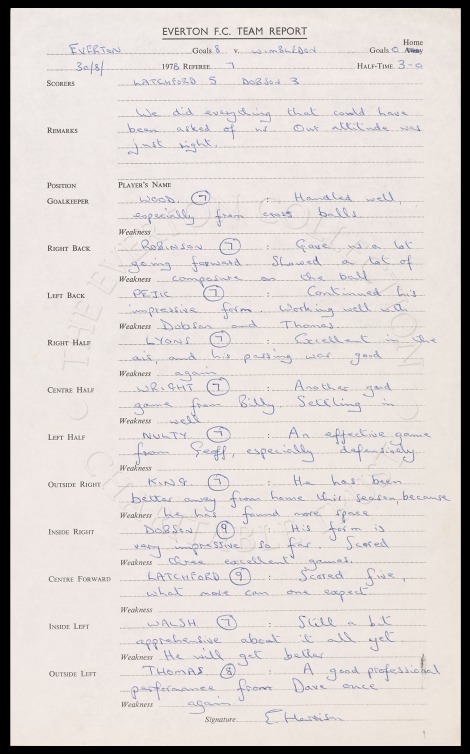 EVERTON F.C. TEAM REPORT
Home
EVERTON Goals 8 v. WIMBLEDON Goals 0 Away
30/8/ 1978 REFEREE 7 HALF-TIME 3-0
SCORERS LATCHFORD 5 DOBSON 3
We did everything that could have
REMARKS been asked of us. Our attitude was
just right.
POSITION PLAYER'S NAME
GOALKEEPER WOOD. 7 : Handled well,
especially from cross balls
Weakness
RIGHT BACK ROBINSON 7 : Gave us a lot
going forward. Showed a lot of
Weakness composure on the ball
LEFT BACK PEJIC 7 : Continued his
impressive form. Working well with
Weakness Dobson and Thomas.
RIGHT HALF LYONS 7 : Excellent in the
air, and his passing was good
Weakness again
CENTRE HALF WRIGHT 7 : Another good
game from Billy. Settling in
Weakness well
LEFT HALF NULTY 7 : An effective game
from Geoff, especially defensively
Weakness
OUTSIDE RIGHT KING. 7 : He has been
better away from home this season, because
Weakness he has found more space
INSIDE RIGHT DOBSON 9 : His form is
very impressive so far. Scored
Weakness three excellent games.
CENTRE FORWARD LATCHFORD 9 : Scored five,
what more can one expect
Weakness
INSIDE LEFT WALSH 7 : Still a bit
apprehensive about it all yet
Weakness He will get better
OUTSIDE LEFT THOMAS 8 : A good professional
performance from Dave once
Weakness again
Signature E Harrison